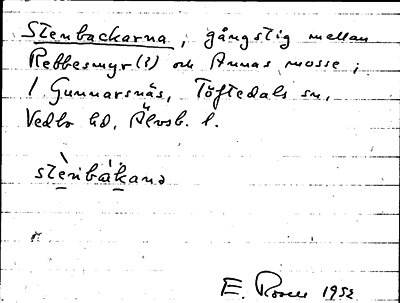 Stenbackarna, gångstig mellan
Rebbesmyr(?) och Annas mosse;
i Gunnarsnäs, Töftedals sn,
Vedbo hd, Älvsb. l.
stènbákanə
E. 1952